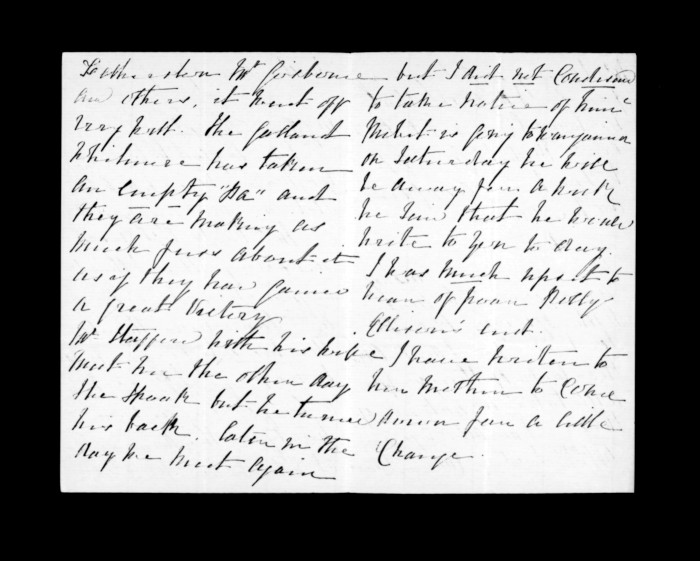 Featherston Mr Gisborne
an others, it went off
very well. The gallant
Whitmore has taken
an empty "Pa" and
they are making as
much fuss about it
as if they had gained
a great Victory
Mr Stafford with his wife
met her the other day
she spoak but he turned
his back. Later in the
day he meet again
but I did not Condisend
to take notice of him
is going to Wanganui
on Saturday he will
be away for a week
he said that he would
write to you to day.
I was much upset to
hear of poor
Ellison's end.
I have written to
her Mother to come
down for a little
Change.